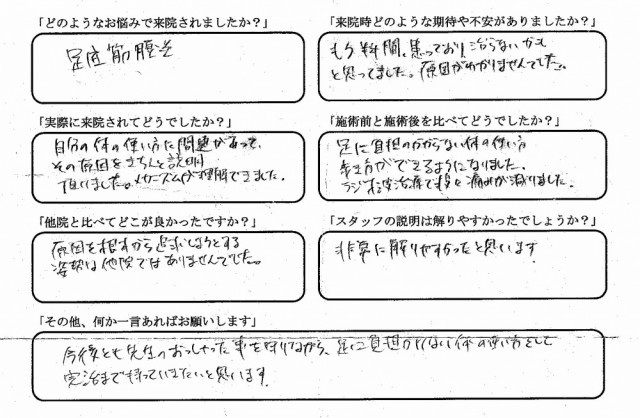 「どのようなお悩みで来院されましたか？」
足底筋膜炎
「来院時どのような期待や不安がありましたか？」
もう半年間、患っており、治らないかも
と思ってました。原因がわかりませんでした。
「実際に来院されてどうでしたか？」
自分の体の使い方に問題があって、
その原因をきちんと説明
頂いました。メカニズムが理解できました。
「施術前と施術後を比べてどうでしたか？」
足に負担のかからない体の使い方
歩き方ができるようになりました。
ラジオ波治療で段々痛みが減りました。
「他院と比べてどこが良かったですか？」
原因を根本から追求しようとする
姿勢は他院ではありませんでした。
「スタッフの説明は解りやすかったでしょうか？」
非常に解りやすかったと思います
「その他、何か一言あればお願いします」
今後とも先生のおっしゃった事を守りながら、足に負担かけない体の使い方をして
完治まで持っていきたいと思います